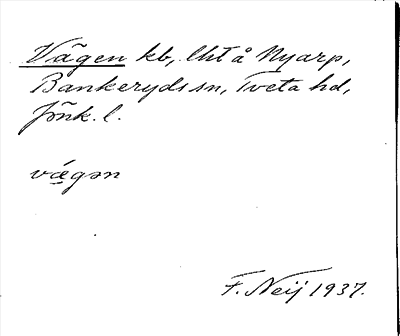 Vägen kb, lht å Nyarp,
Bankeryds sn, Tveta hd,
Jönk. l.
vä̀gən
F. Neij 1937.